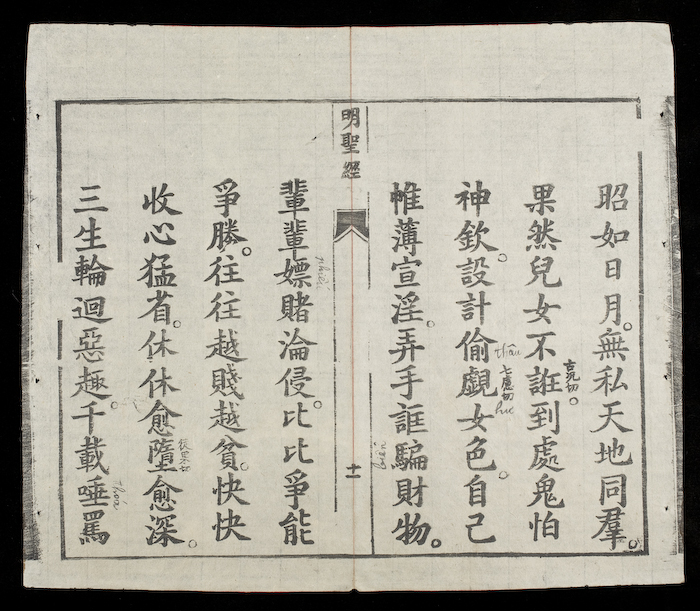 昭如日月。無私天地同羣。
果然兒女不誑。到處鬼怕
古況切
神欽。設計偷覷女色。自己
thâu
七慮切
帷薄宣淫。弄手誆騙財物。
明聖經
十一
輩輩嫖賭淪侵。比比爭能
phiêu
爭勝。往往越賤越貧。快快
收心猛省。休休愈墮愈深。
三生輪迴惡趣。千載唾罵
thóa